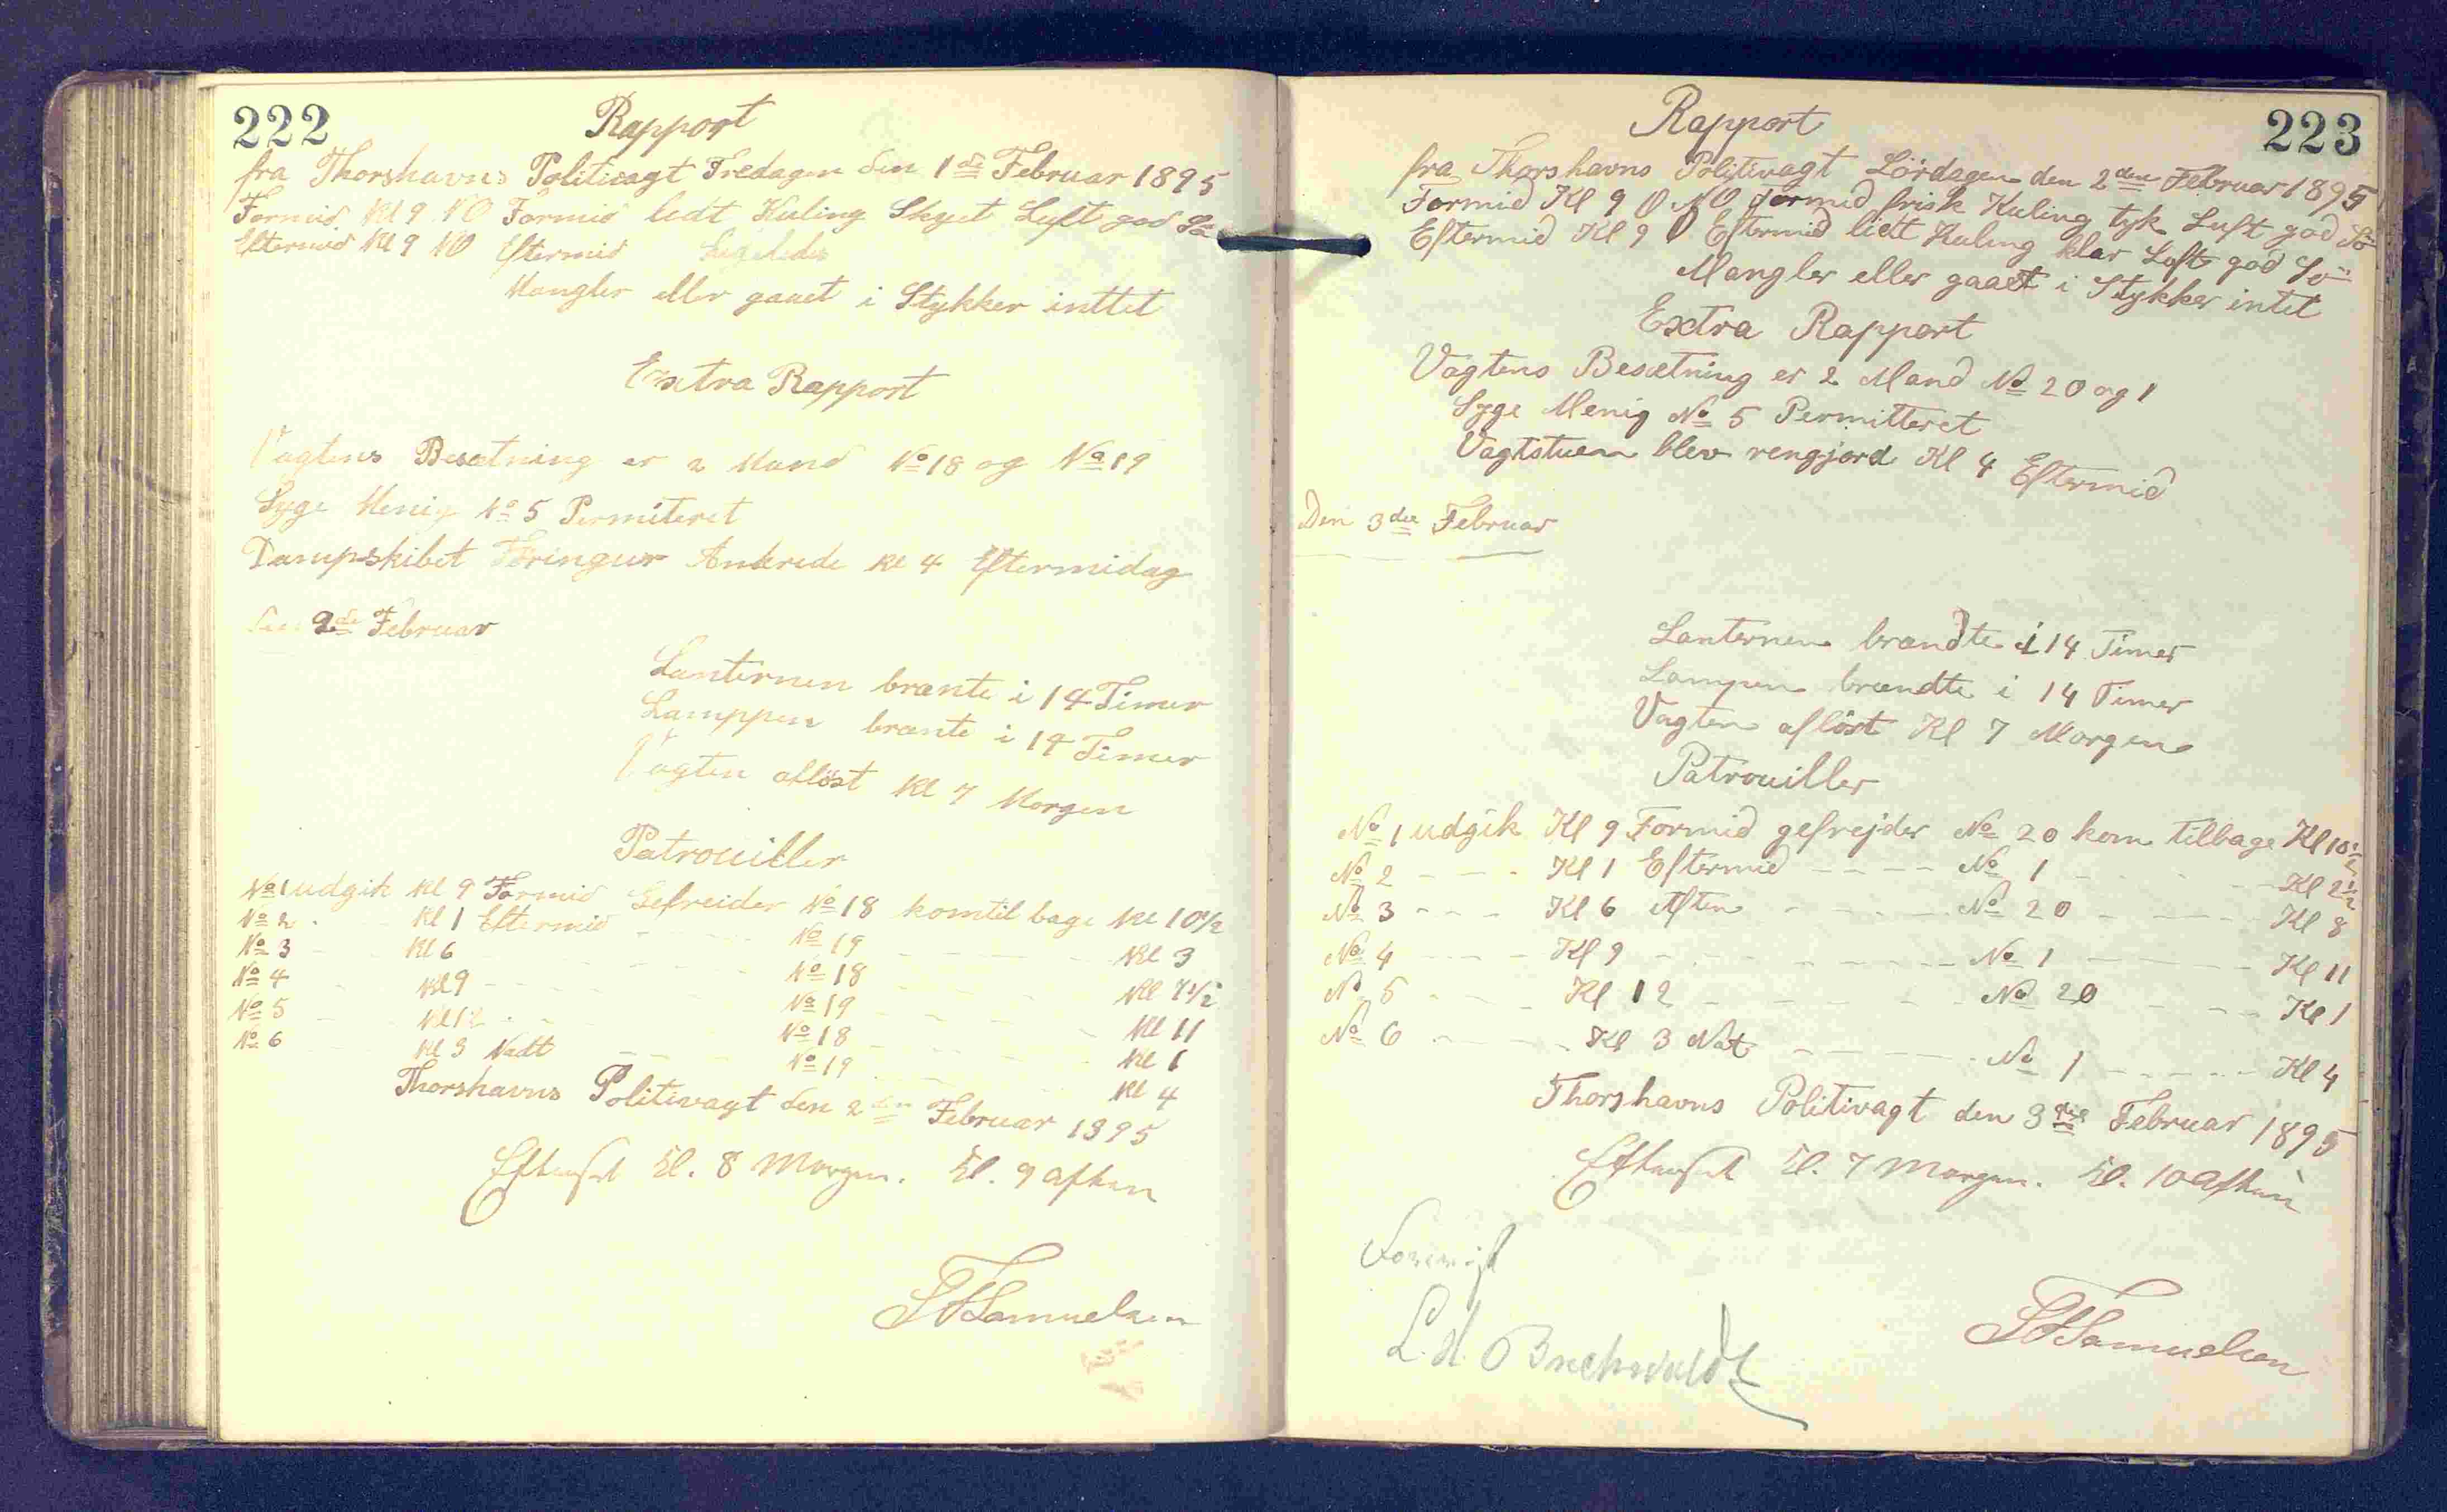 222
Rapport
fra Thorshavns Politivagt Fredagen den 1de Februar 1895
Formid Kl 9 NO Formid ledt Kuling Skyet Luft god Sö
Eftermid Kl 9 NO Eftermid Ligeledes
Mangler eller gaaet i Stykker inttet
Extra Rapport
Vagtens Besætning er 2 Mand No 18 og No 19
Syge Menig No 5 Permiteret
Dampskibet Föringur Ankrede kl 4 Eftermidag
den 2de Februar
Lanternen brænte i 14 Timer
Lamppen brænte i 14 Timer
Vagten aflöst Kl 7 Morgen
Patrouiller
No 1 udgik Kl 9 Formid Gefreider No 18 kom til bage Kl 10 1/2
No 2 - - Kl 1 Eftermid - - - No 19 - - - Kl 3
No 3 - - Kl 6 - - - No 18 - - - Kl 7 1/2
No 4 - - Kl 9 - - - No 19 - - - Kl 11
No 5 - - Kl 12 - - - No 18 - - - Kl 1
No 6 - - Kl 3 Nadt - - - No 19 - - - Kl 4
Thorshavns Politivagt den 2den Februar 1895
Efterset Kl. 8 Morgen. Kl. 9 Aften
Samuelsen
223
Rapport
fra Thorshavns Politivagt Lördagen den 2den Februar 1895
Formid Kl 9 O NO Formid frisk Kuling tyk Luft god Sö
Eftermid Kl 9 O Eftermid liett Kuling klar Luft god Sö
Mangler eller gaaet i Stykker intet
Extra Rapport
Vagtens Besætning er 2 Mand No 20 og 1
Syge Menig No 5 Permitteret
Vagtstuen blev rengjord Kl 4 Eftermid
Den 3die Februar
Lanternen brændte i 14 Timer
Lampen brændte i 14 Timer
Vagten aflöst Kl 7 Morgen
Patrouiller
No 1 udgik Kl 9 Formid gefrejder No 20 kom tilbage Kl 10 1/2
No 2 - - - Kl 1 Eftermid - - - - No 1 - - - - Kl 2 1/2
No 3 - - - Kl 6 Aften - - - - No 20 - - - - Kl 8
No 4 - - - Kl 9 - - - - No 1 - - - - Kl 11
No 5 - - - Kl 12 - - - - No 20 - - - - Kl 1
No 6 - - - Kl 3 Nat - - - - No 1 - - - - Kl 4
Thorshavns Politivagt den 3die Februar 1895
Efterset Kl. 7 Morgen. Kl. 10 Aften
Forevist
Samuelsen
Buchwaldt